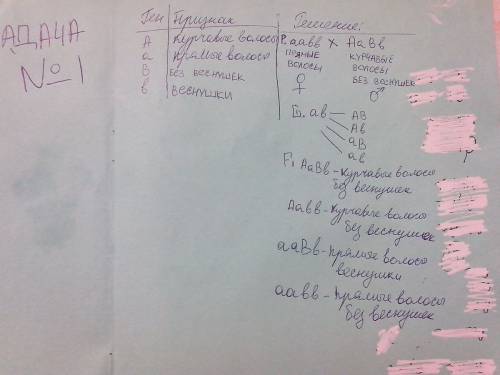 АДАЧА
№1
Ген Признак
А курчавые волосы
а прямые волосы
В без веснушек
в веснушки
Решение:
Р. аавв х АаВв
прямые волосы
♀
курчавые волосы
без веснушек
♂
G. ав
АВ
Ав
аВ
ав
F₁ АаВв - курчавые волосы
без веснушек
Аавв - курчавые волосы
без веснушек
ааВв - прямые волосы
веснушки
аавв - прямые волосы
без веснушек